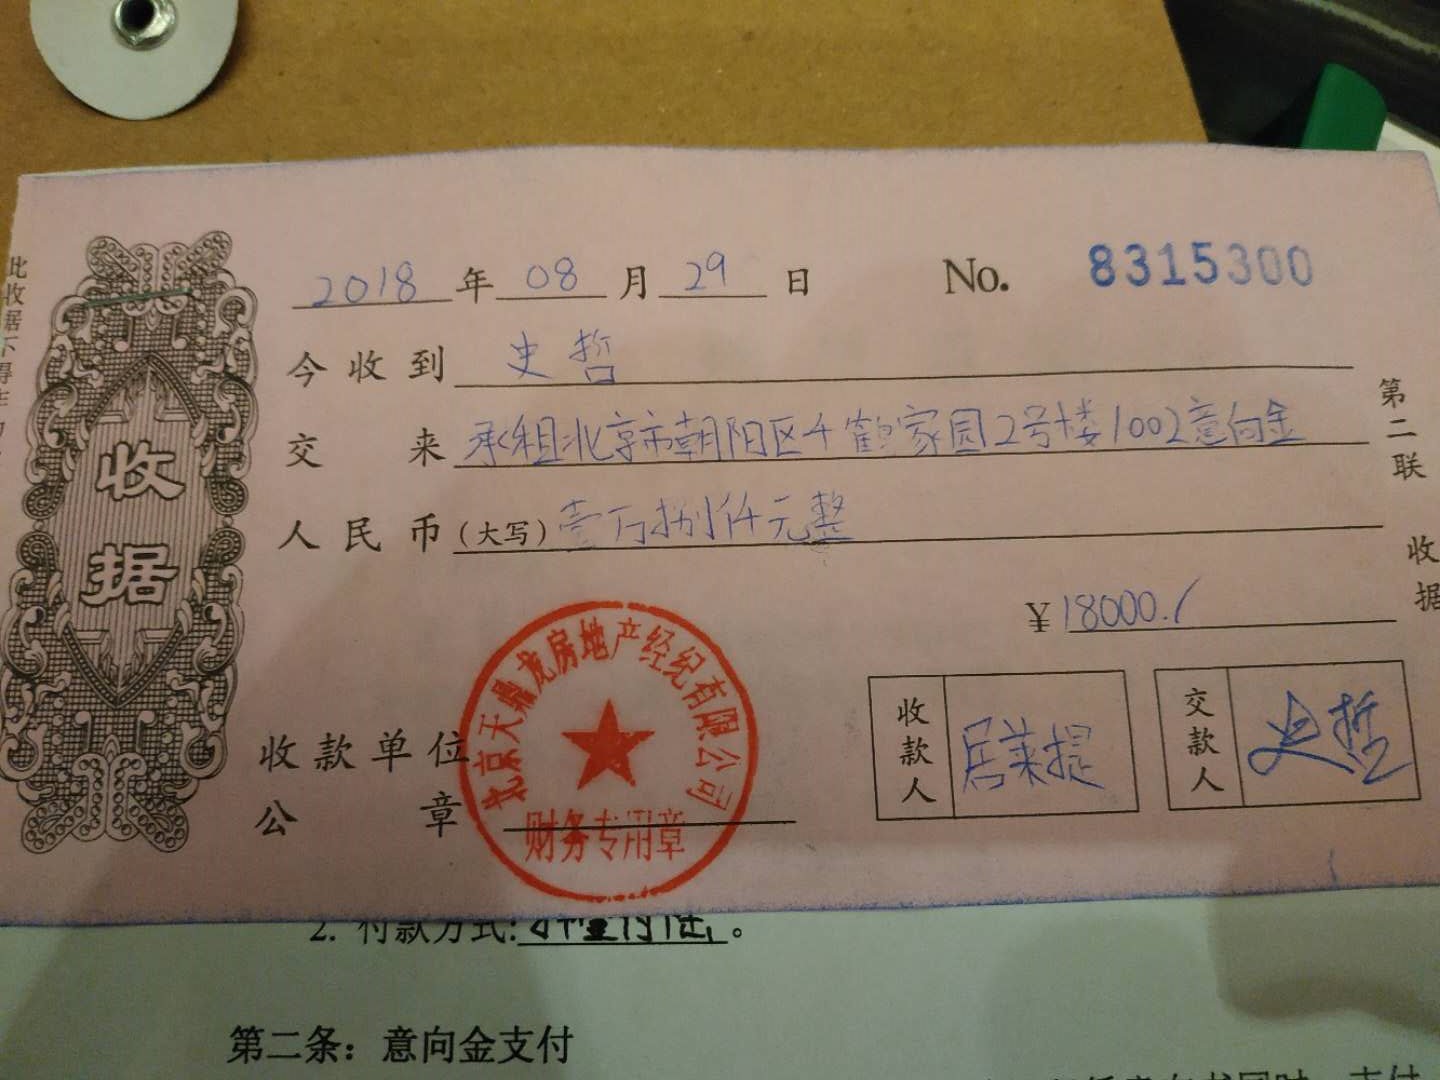 收据
2018年08月29日 No. 8315300
今收到 史哲
交来 承租北京市朝阳区千鹤家园2号楼1002意向金
人民币(大写) 壹万捌仟元整
¥18000./
收款单位
公章
北京天鼎龙房地产经纪有限公司
财务专用章
收款人 居莱提
交款人 史哲
第二联 收据
此收据不得
2. 付款方式:
第二条：意向金支付